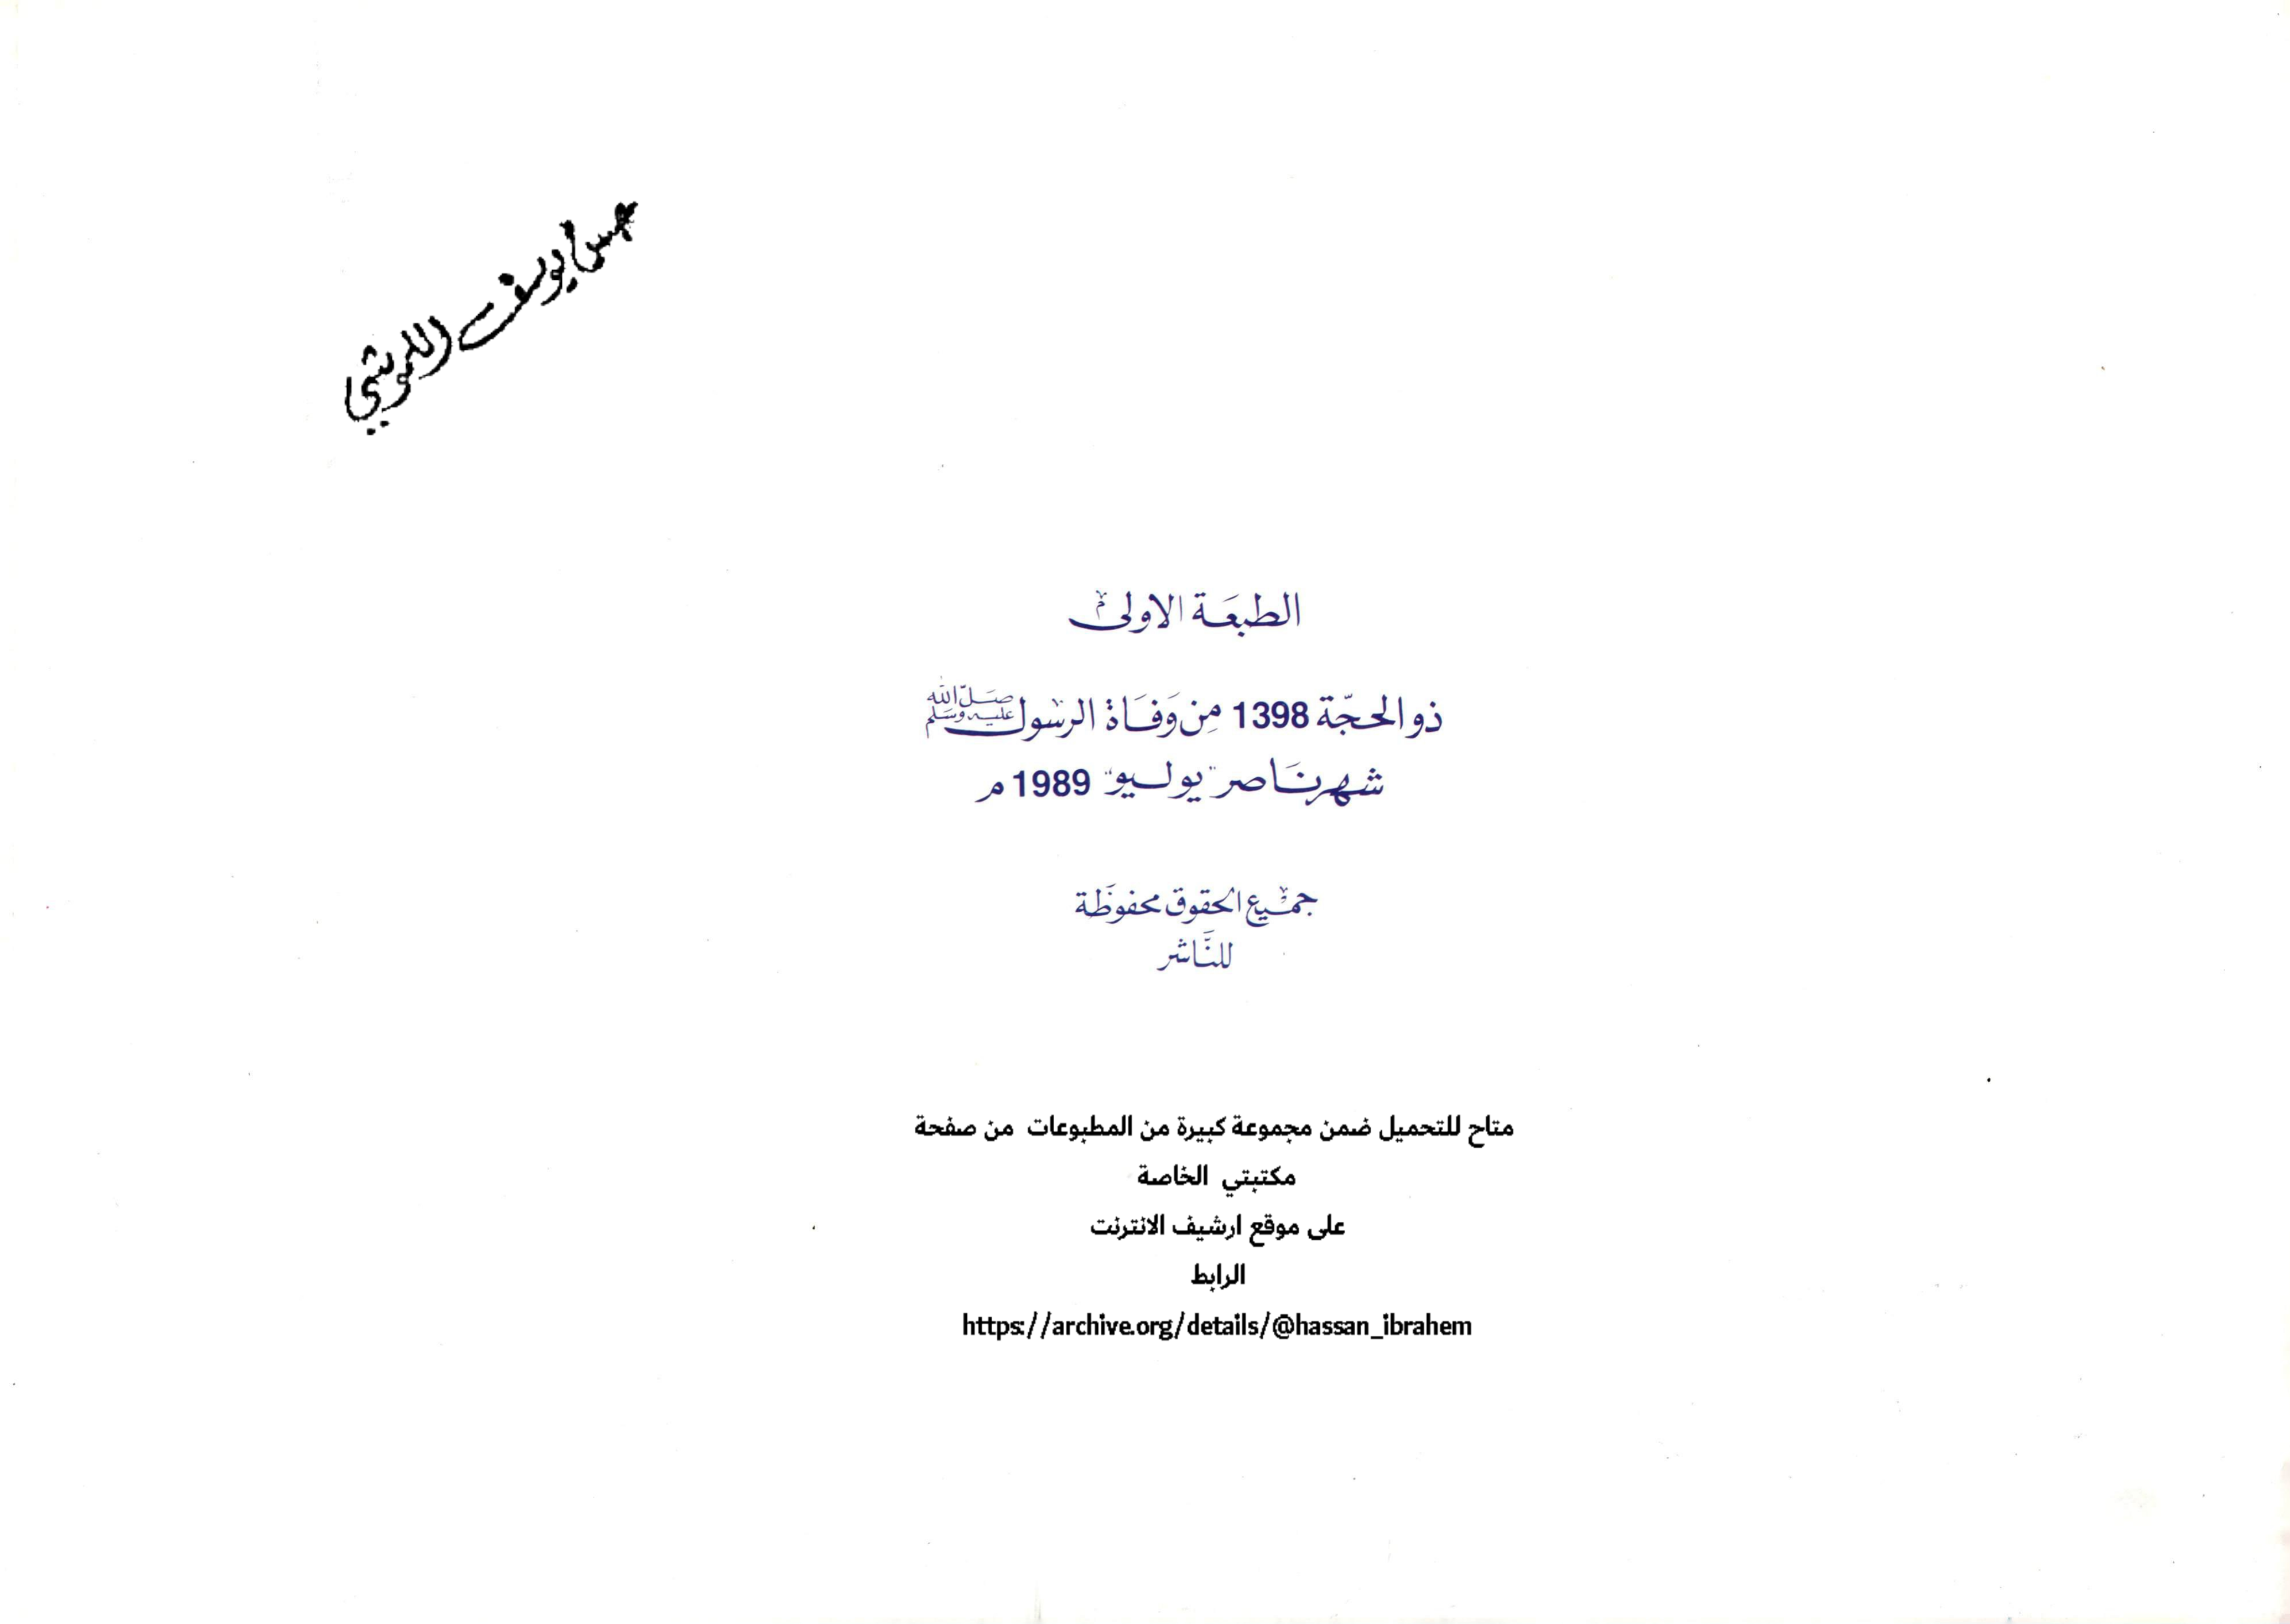 الطبعَة الاولى
ذو الحجّة 1398 مِن وَفَاة الرسول ﷺ
شهر نَاصر "يوليو" 1989 م
جميع الحقوق محفوظَة
للنَّاشر
متاح للتحميل ضمن مجموعة كبيرة من المطبوعات من صفحة
مكتبتي الخاصة
على موقع ارشيف الانترنت
الرابط
https://archive.org/details/@hassan_ibrahem